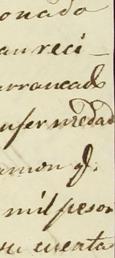 onado
au reci_
arrancado
enfermedad
amon J.
mil pesos
su cuenta